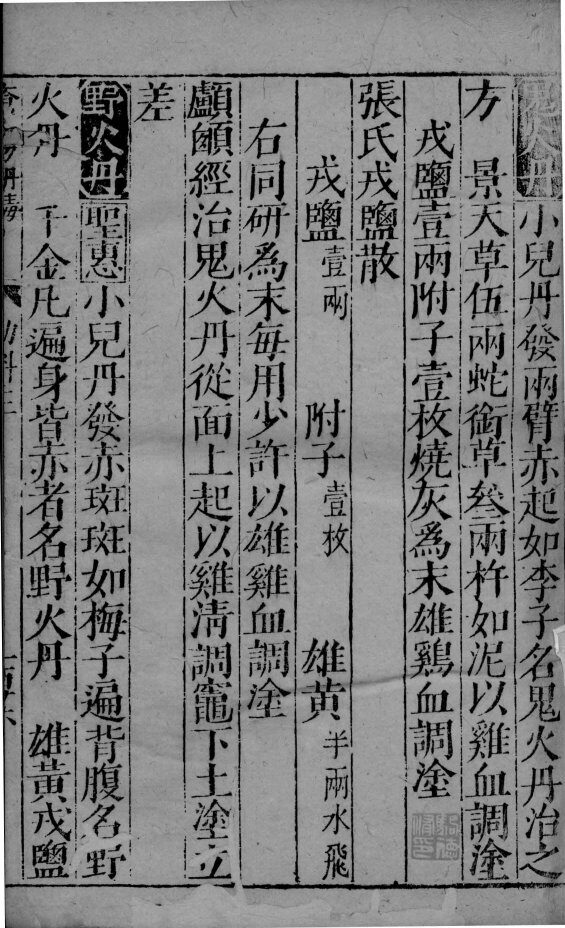 鬼火丹小兒丹發兩臂赤起如李子名鬼火丹治之
方　景天草伍兩蛇銜草叄兩杵如泥以雞血調塗
戎鹽壹兩附子壹枚燒灰爲末雄鷄血調塗
張氏戎鹽散
戎鹽壹兩　附子壹枚　雄黄半兩水飛
右同研爲末每用少許以雄雞血調塗
顱顖經治鬼火丹從面上起以雞清調竈下土塗立
差
野火丹聖惠小兒丹發赤斑斑如梅子遍背腹名野
火丹　千金凡遍身皆赤者名野火丹　雄黄戎鹽